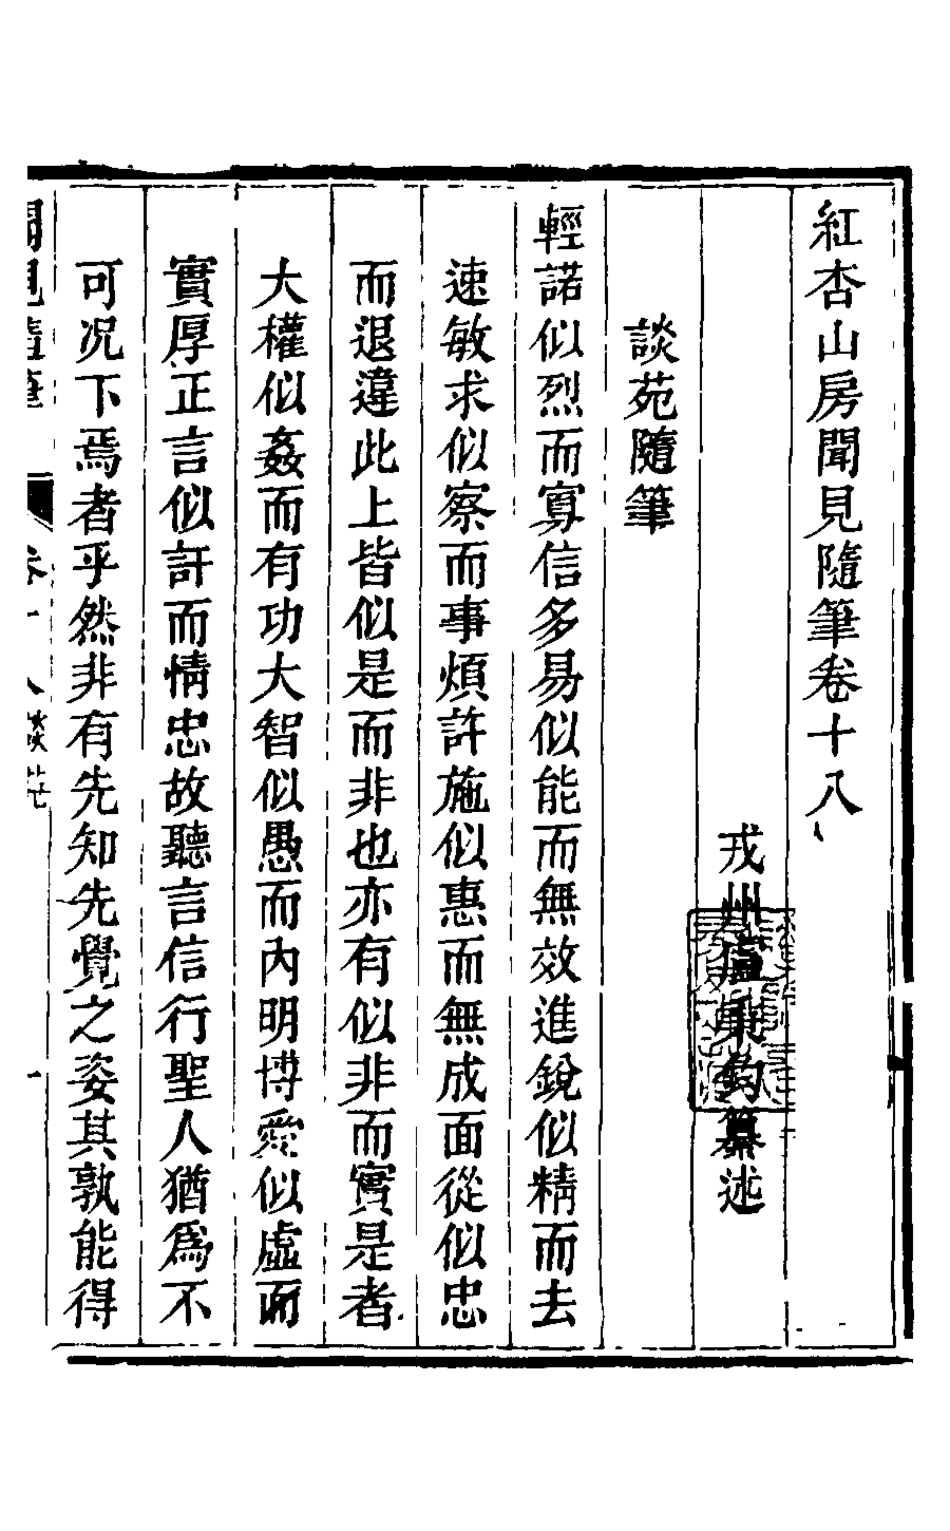 紅杏山房聞見隨筆卷十八
戎州盧秉鈞纂述
談苑隨筆
輕諾似烈而寡信多易似能而無效進銳似精而去
速敏求似察而事煩許施似惠而無成面從似忠
而退違此上皆似是而非也亦有似非而實是者
大權似姦而有功大智似愚而內明博愛似虛而
實厚正言似訐而情忠故聽言信行聖人猶為不
可況下焉者乎然非有先知先覺之姿其孰能得
聞見隨筆 卷十八談苑 一